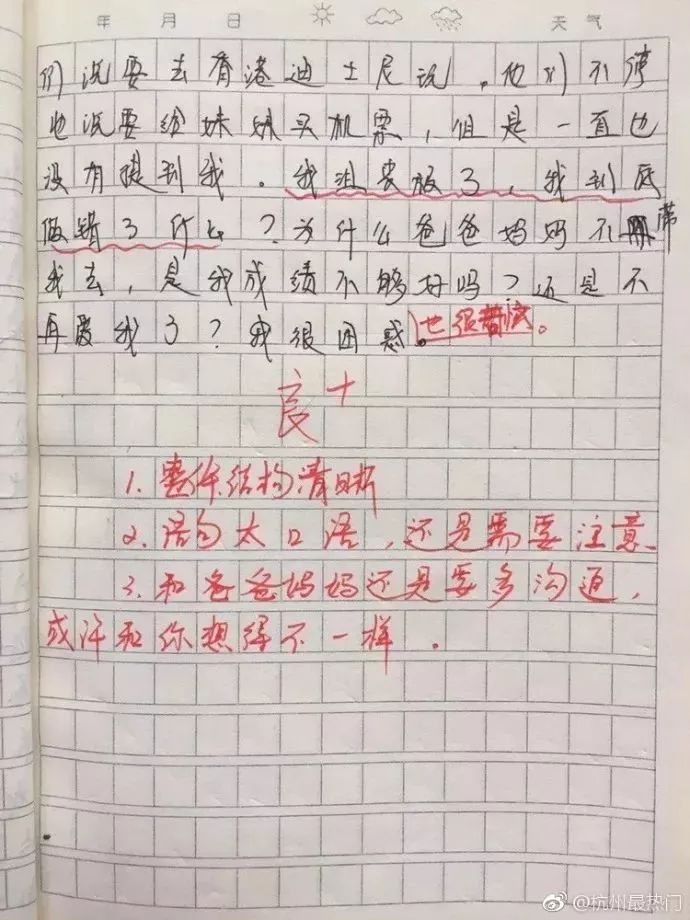 年 月 日 天气
们说要去香港迪士尼玩。他们不停
也说要给妹妹买机票，但是一直也
没有提到我。我沮丧极了，我到底
做错了什么？为什么爸爸妈妈不带
我去，是我成绩不够好吗？还是不
再爱我了？我很困惑。也很苦恼。
良+
1.整体结构清晰
2.语句太口语，还是需要注意
3.和爸爸妈妈还是要多沟通，
或许和你想得不一样。
@杭州最热门